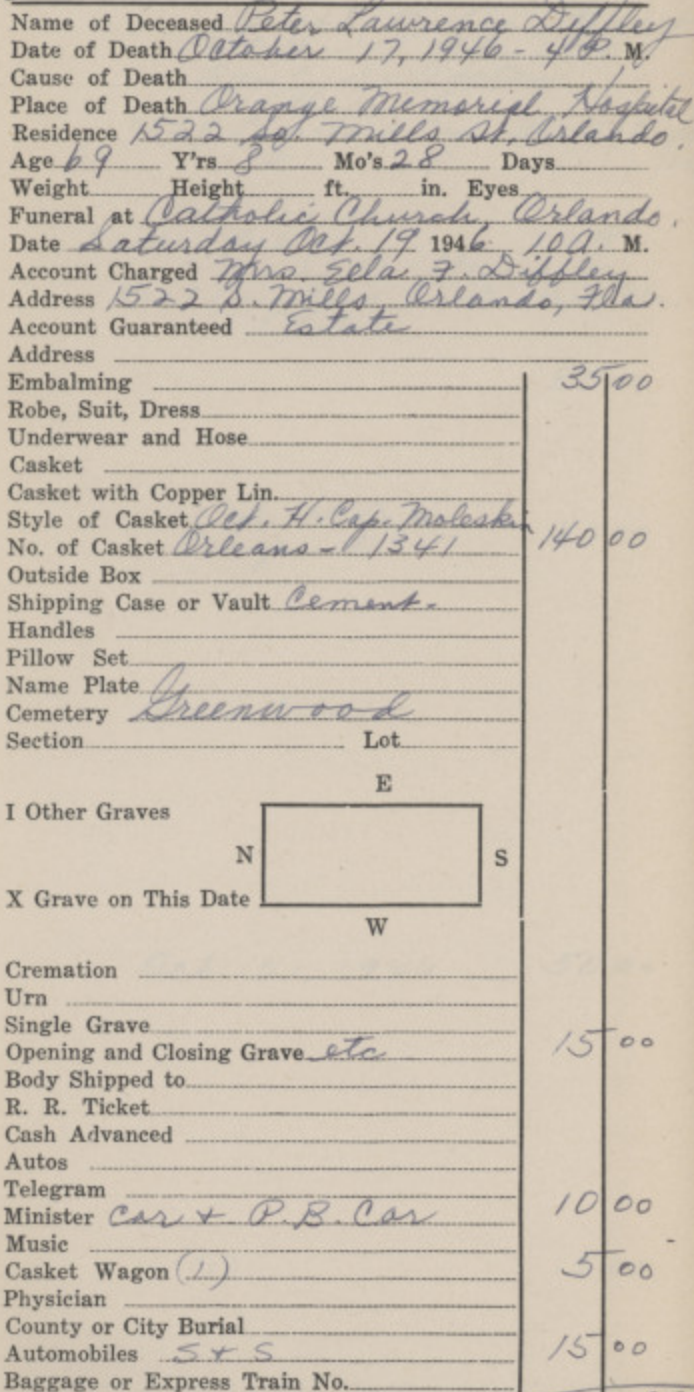 Name of Deceased Peter Lawrence Diffley
Date of Death October 17, 1946 - 4 P. M.
Cause of Death
Place of Death Orange Memorial Hospital
Residence 1522 So. Mills St, Orlando.
Age 69 Y'rs 8 Mo's 28 Days
Weight Height ft. in. Eyes
Funeral at Catholic Church, Orlando.
Date Saturday Oct. 19 1946 10 A. M.
Account Charged Mrs. Eela F. Diffley
Address 1522 S. Mills, Orlando, Fla.
Account Guaranteed Estate
Address
Embalming 35 00
Robe, Suit, Dress
Underwear and Hose
Casket
Casket with Copper Lin.
Style of Casket Oct. H. Cap. Moleskin
No. of Casket Orleans - 1341 140 00
Outside Box
Shipping Case or Vault Cement-
Handles
Pillow Set
Name Plate
Cemetery Greenwood
Section Lot
E
I Other Graves
N S
X Grave on This Date
W
Cremation
Urn
Single Grave
Opening and Closing Grave etc 15 00
Body Shipped to
R. R. Ticket
Cash Advanced
Autos
Telegram
Minister Car + P.B. Car 10 00
Music
Casket Wagon (1) 5 00
Physician
County or City Burial
Automobiles S + S 15 00
Baggage or Express Train No.